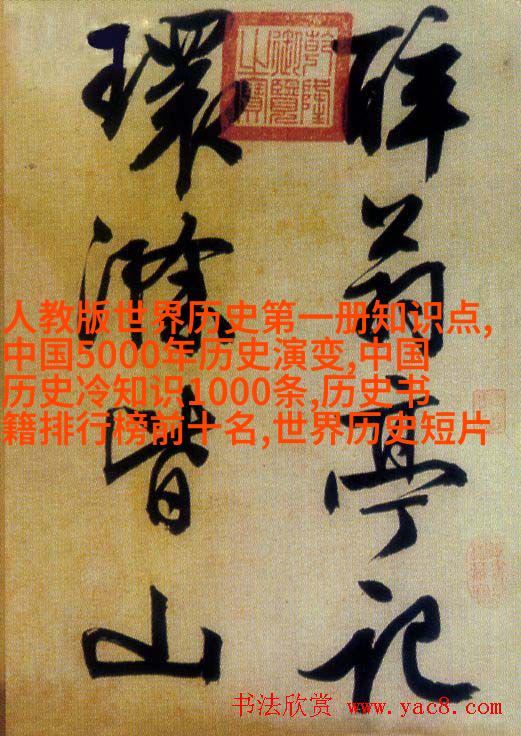 醉翁亭記
環滁皆山
乾隆
御覽
之寶
人教版世界历史第一册知识点,
中国5000年历史演变,中国
历史冷知识1000条,历史书
籍排行榜前十名,世界历史短片
书法欣赏 www.yac8.com